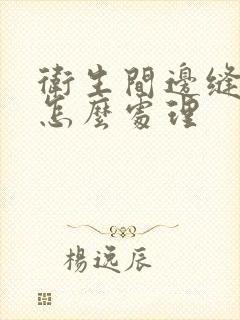 衛生間邊縫
怎麼處理
楊逸辰